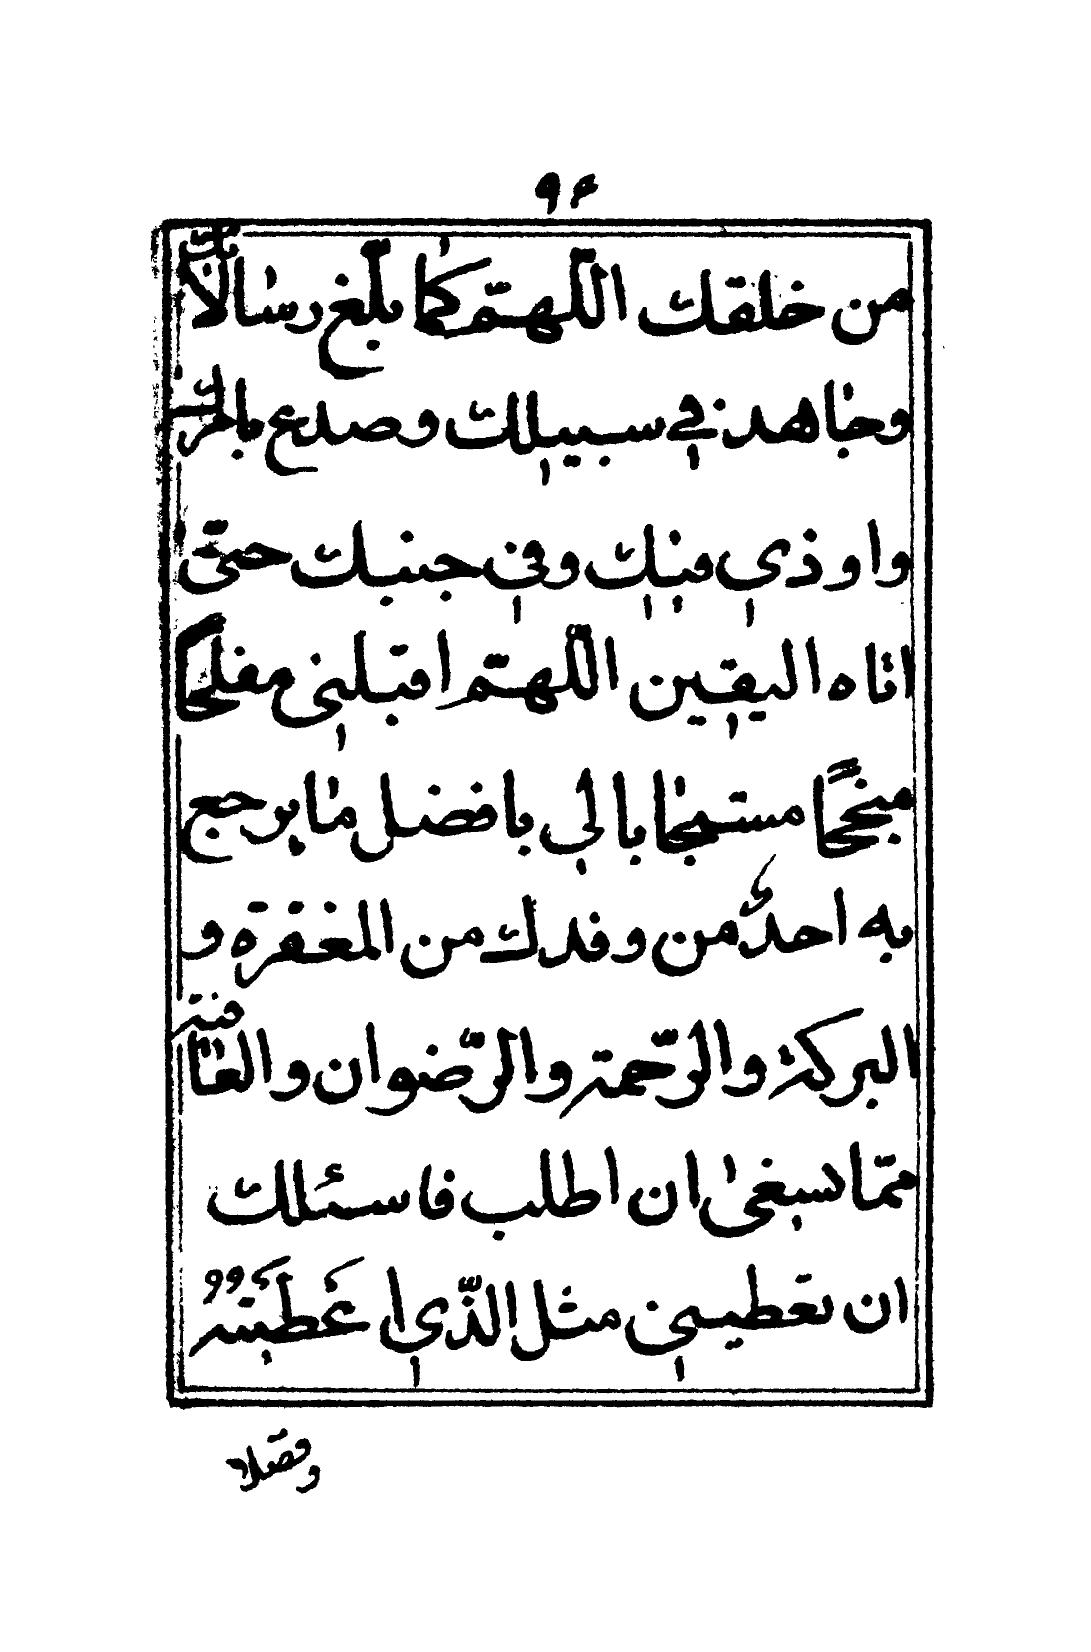 ۹۶
من خلقك اللّهمّ كما بلّغ رسالاتك
وجاهد في سبيلك وصدع بامرك
واوذي فيك وفي جنبك حتّى
اتاه اليقين اللّهمّ اقبلني مفلحا
منجحًا مستجابا لي بافضل ما يرجع
به احدٌ من وفدك من المغفرة و
البركة والرّحمة والرّضوان والعافية
ممّا يسعني ان اطلب فاسئلك
ان تعطيني مثل الّذي اَعْطَيْتَهُ